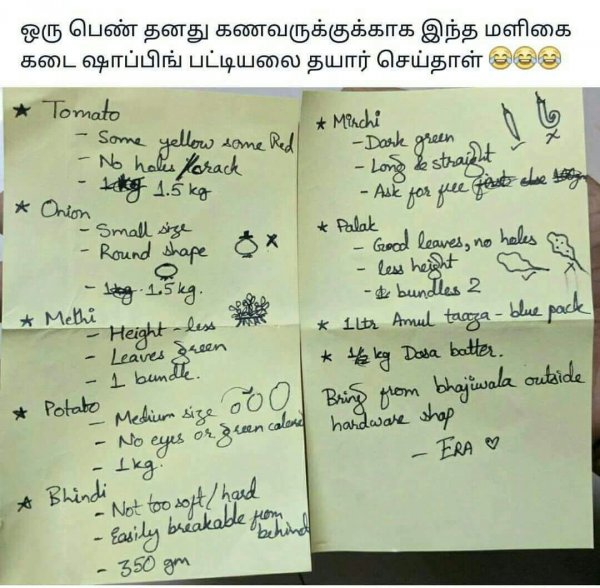 ஒரு பெண் தனது கணவருக்குக்காக இந்த மளிகை
கடை ஷாப்பிங் பட்டியலை தயார் செய்தாள் 😂😂😂
★ Tomato
- Some yellow some Red
- No holes/crack
- 1.5 kg
★ Onion
- Small size
- Round shape
- 1kg 1.5kg.
★ Methi
- Height - less
- Leaves green
- 1 bundle.
★ Potato
- Medium size
- No eyes or green
- 1kg.
★ Bhindi
- Not too soft/hard
- Easily breakable from
behind
- 350 gm
★ Mirchi
- Dark green
- Long & straight
- Ask for free first else 100g
★ Palak
- Good leaves, no holes
- less height
- bundles 2
★ 1ltr Amul taaza - blue pack
★ 1/2 kg Dosa batter.
Bring from bhajiwala outside
hardware shop
- ERA ♡